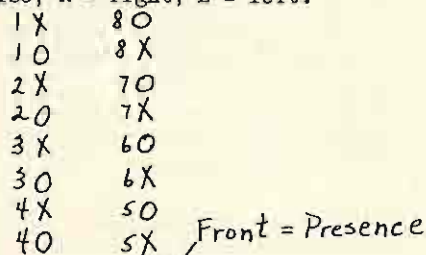 1X 80
10 8X
2X 70
20 7X
3X 60
30 6X
4X 50
40 5X
Front = Presence